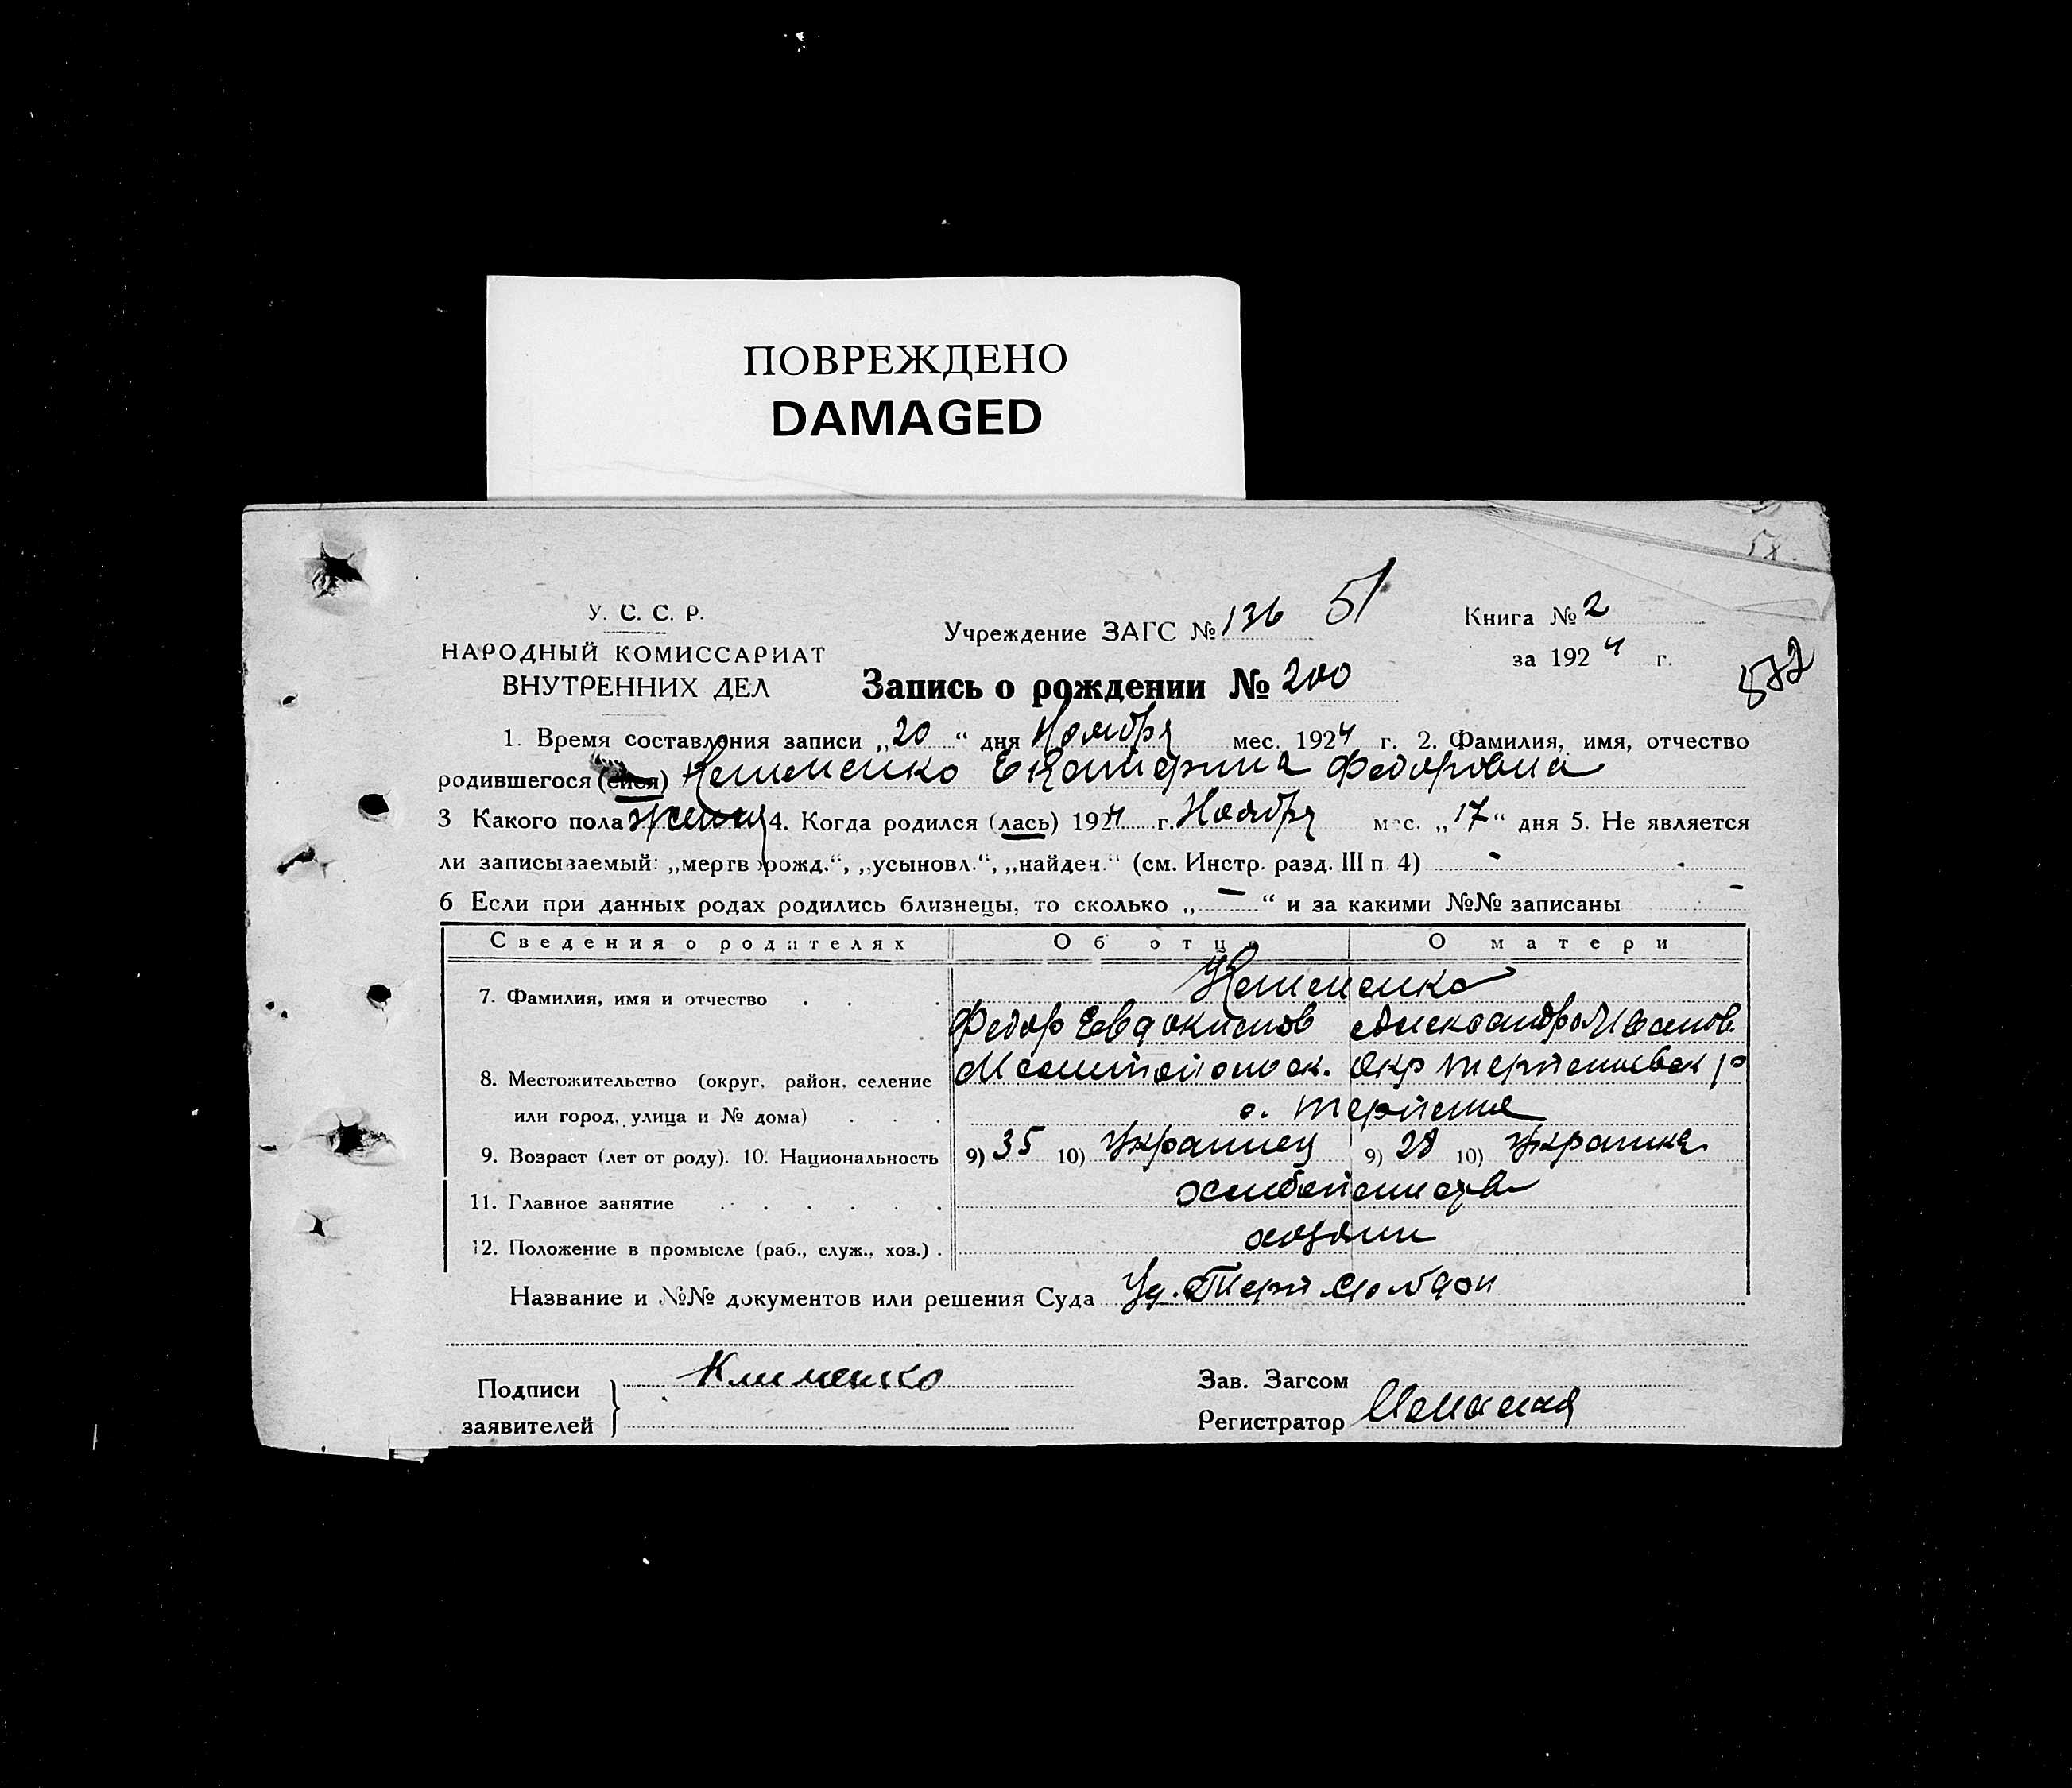 ПОВРЕЖДЕНО
DAMAGED
58
У. С. С. Р.
НАРОДНЫЙ КОМИССАРИАТ
ВНУТРЕННИХ ДЕЛ
Учреждение ЗАГС № 136 51
Книга № 2
за 1924 г.
572
Запись о рождении № 200
1. Время составления записи „20“ дня Ноября мес. 1924 г. 2. Фамилия, имя, отчество
родившегося (ейся) Клименко Екатерина Федоровна
3 Какого пола женск 4. Когда родился (лась) 1924 г. Ноября мес. „17“ дня 5. Не является
ли записываемый: „мертворожд.“, „усыновл.“, „найден.“ (см. Инстр. разд. III п. 4) - -
6 Если при данных родах родились близнецы, то сколько „—“ и за какими №№ записаны —
Сведения о родителях Об отце О матери
7. Фамилия, имя и отчество Клименко
Федор Евдокимов Александра Иванов.
8. Местожительство (округ, район, селение Мелитопольск. Окр Терпеньевск р
или город, улица и № дома) с. Терпенье
9. Возраст (лет от роду). 10. Национальность 9) 35 10) Украинец 9) 28 10) Украинка
11. Главное занятие хлебопашество
12. Положение в промысле (раб., служ., хоз.) хозяин
Название и №№ документов или решения Суда Уд. Терп
Подписи заявителей Клименко
Зав. Загсом
Регистратор